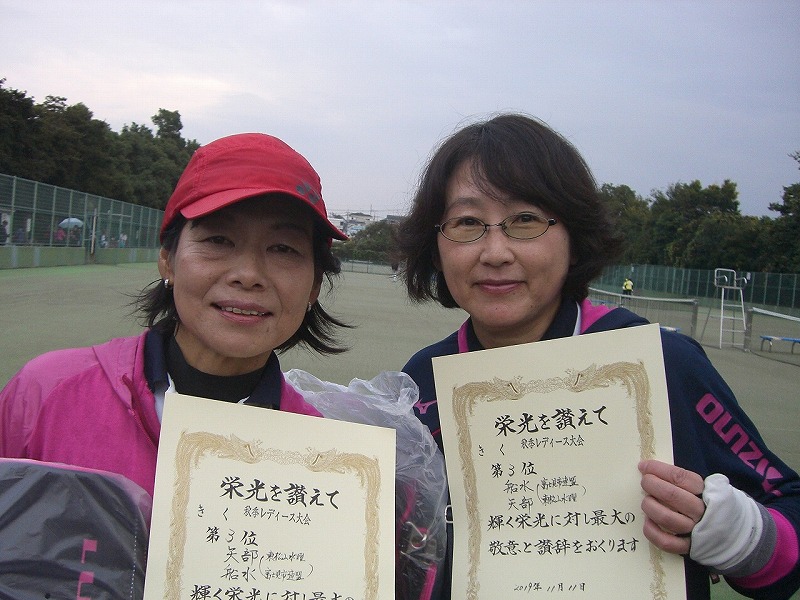 栄光を讃えて
きく 秋季レディース大会
第3位
矢部
船水(富士見市連盟)
輝く栄光に対し最大の
栄光を讃えて
きく 秋季レディース大会
第3位
船水(富士見市連盟)
矢部
輝く栄光に対し最大の
敬意と讃辞をおくります
2019年11月11日
MIZUNO